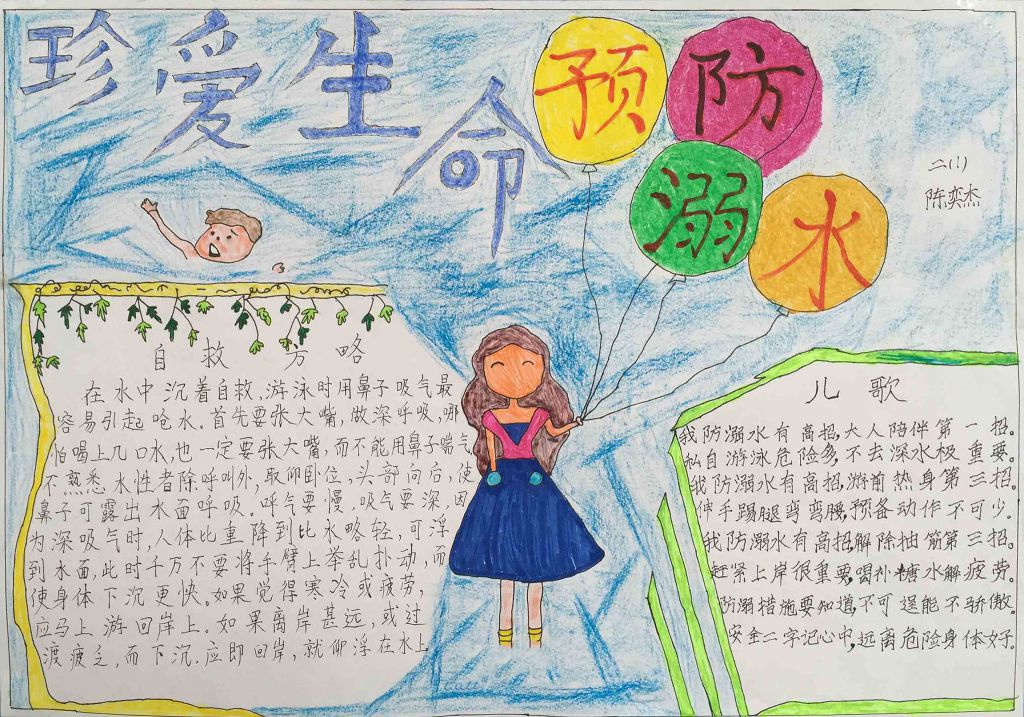 珍爱生命
预防溺水
二(1)
陈奕杰
自救方略
在水中沉着自救,游泳时用鼻子吸气最
容易引起呛水.首先要张大嘴,做深呼吸,哪
怕喝上几口水,也一定要张大嘴,而不能用鼻子喘气
不熟悉水性者除呼叫外,取仰卧位,头部向后,使
鼻子可露出水面呼吸.呼气要慢,吸气要深,因
为深吸气时,人体比重降到比水略轻,可浮
到水面,此时千万不要将手臂上举乱扑动,而
使身体下沉更快.如果觉得寒冷或疲劳,
应马上游回岸上.如果离岸甚远,或过
渡疲乏,而下沉,应即回岸,就仰浮在水上
儿歌
我防溺水有高招,大人陪伴第一招.
私自游泳危险多,不去深水极重要.
我防溺水有高招,游前热身第三招.
伸手踢腿弯弯腰,预备动作不可少.
我防溺水有高招,解除抽筋第三招.
赶紧上岸很重要,喝补糖水解疲劳.
防溺措施要知道,不可逞能不骄傲.
安全二字记心中,远离危险身体好.